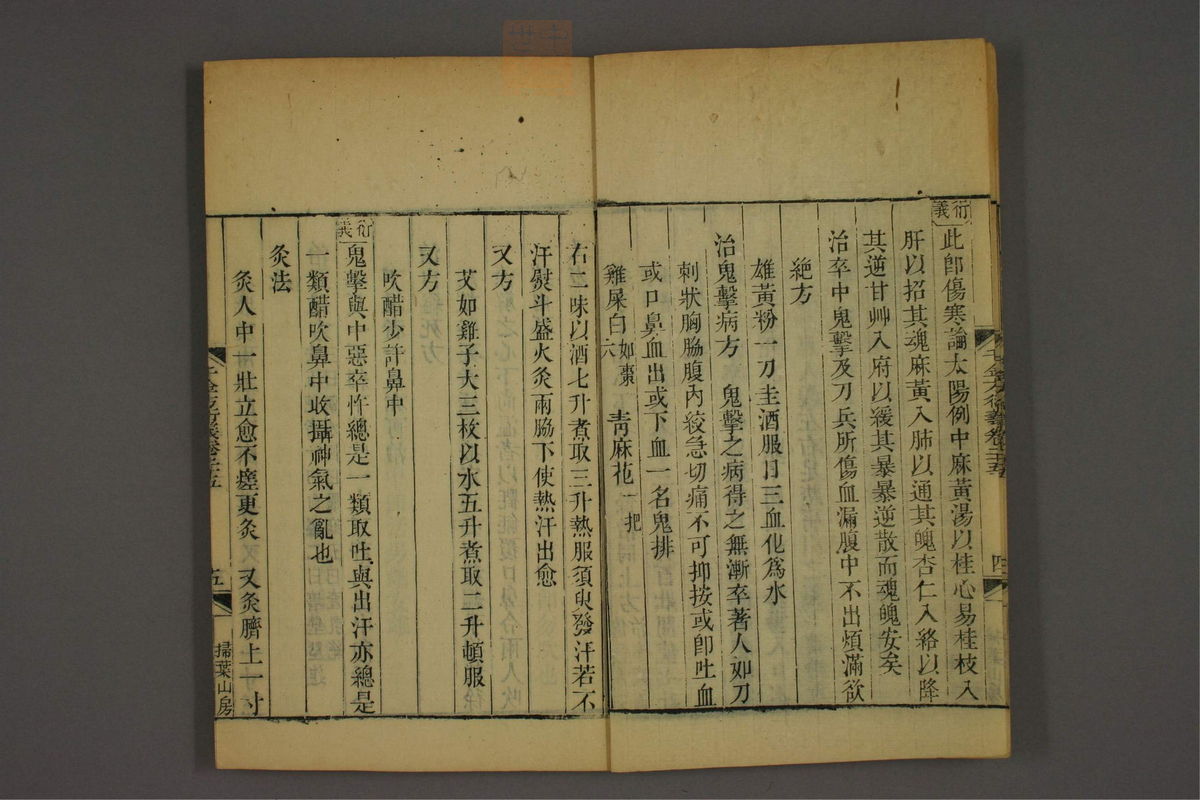 千金方衍義卷二十五
四
衍義
此卽傷寒論太陽例中麻黃湯以桂心易桂枝入
肝以招其魂麻黃入肺以通其魄杏仁入絡以降
其逆甘艸入府以緩其暴暴逆散而魂魄安矣
治卒中鬼擊及刀兵所傷血漏腹中不出煩滿欲
絕方
雄黃粉一刀圭酒服日三血化爲水
治鬼擊病方　鬼擊之病得之無漸卒著人如刀
刺狀胸脇腹內絞急切痛不可抑按或卽吐血
或口鼻血出或下血一名鬼排
雞屎白如棗六　靑麻花一把
右二味以酒七升煮取三升熱服須臾發汗若不
汗熨斗盛火灸兩脇下使熱汗出愈
又方
艾如雞子大三枚以水五升煮取二升頓服
又方
吹醋少許鼻中
衍義
鬼擊與中惡卒忤總是一類取吐與出汗亦總是
一類醋吹鼻中收攝神氣之亂也
灸法
灸人中一壯立愈不瘥更灸　又灸臍上一寸
千金方衍義卷二十五
五
掃葉山房